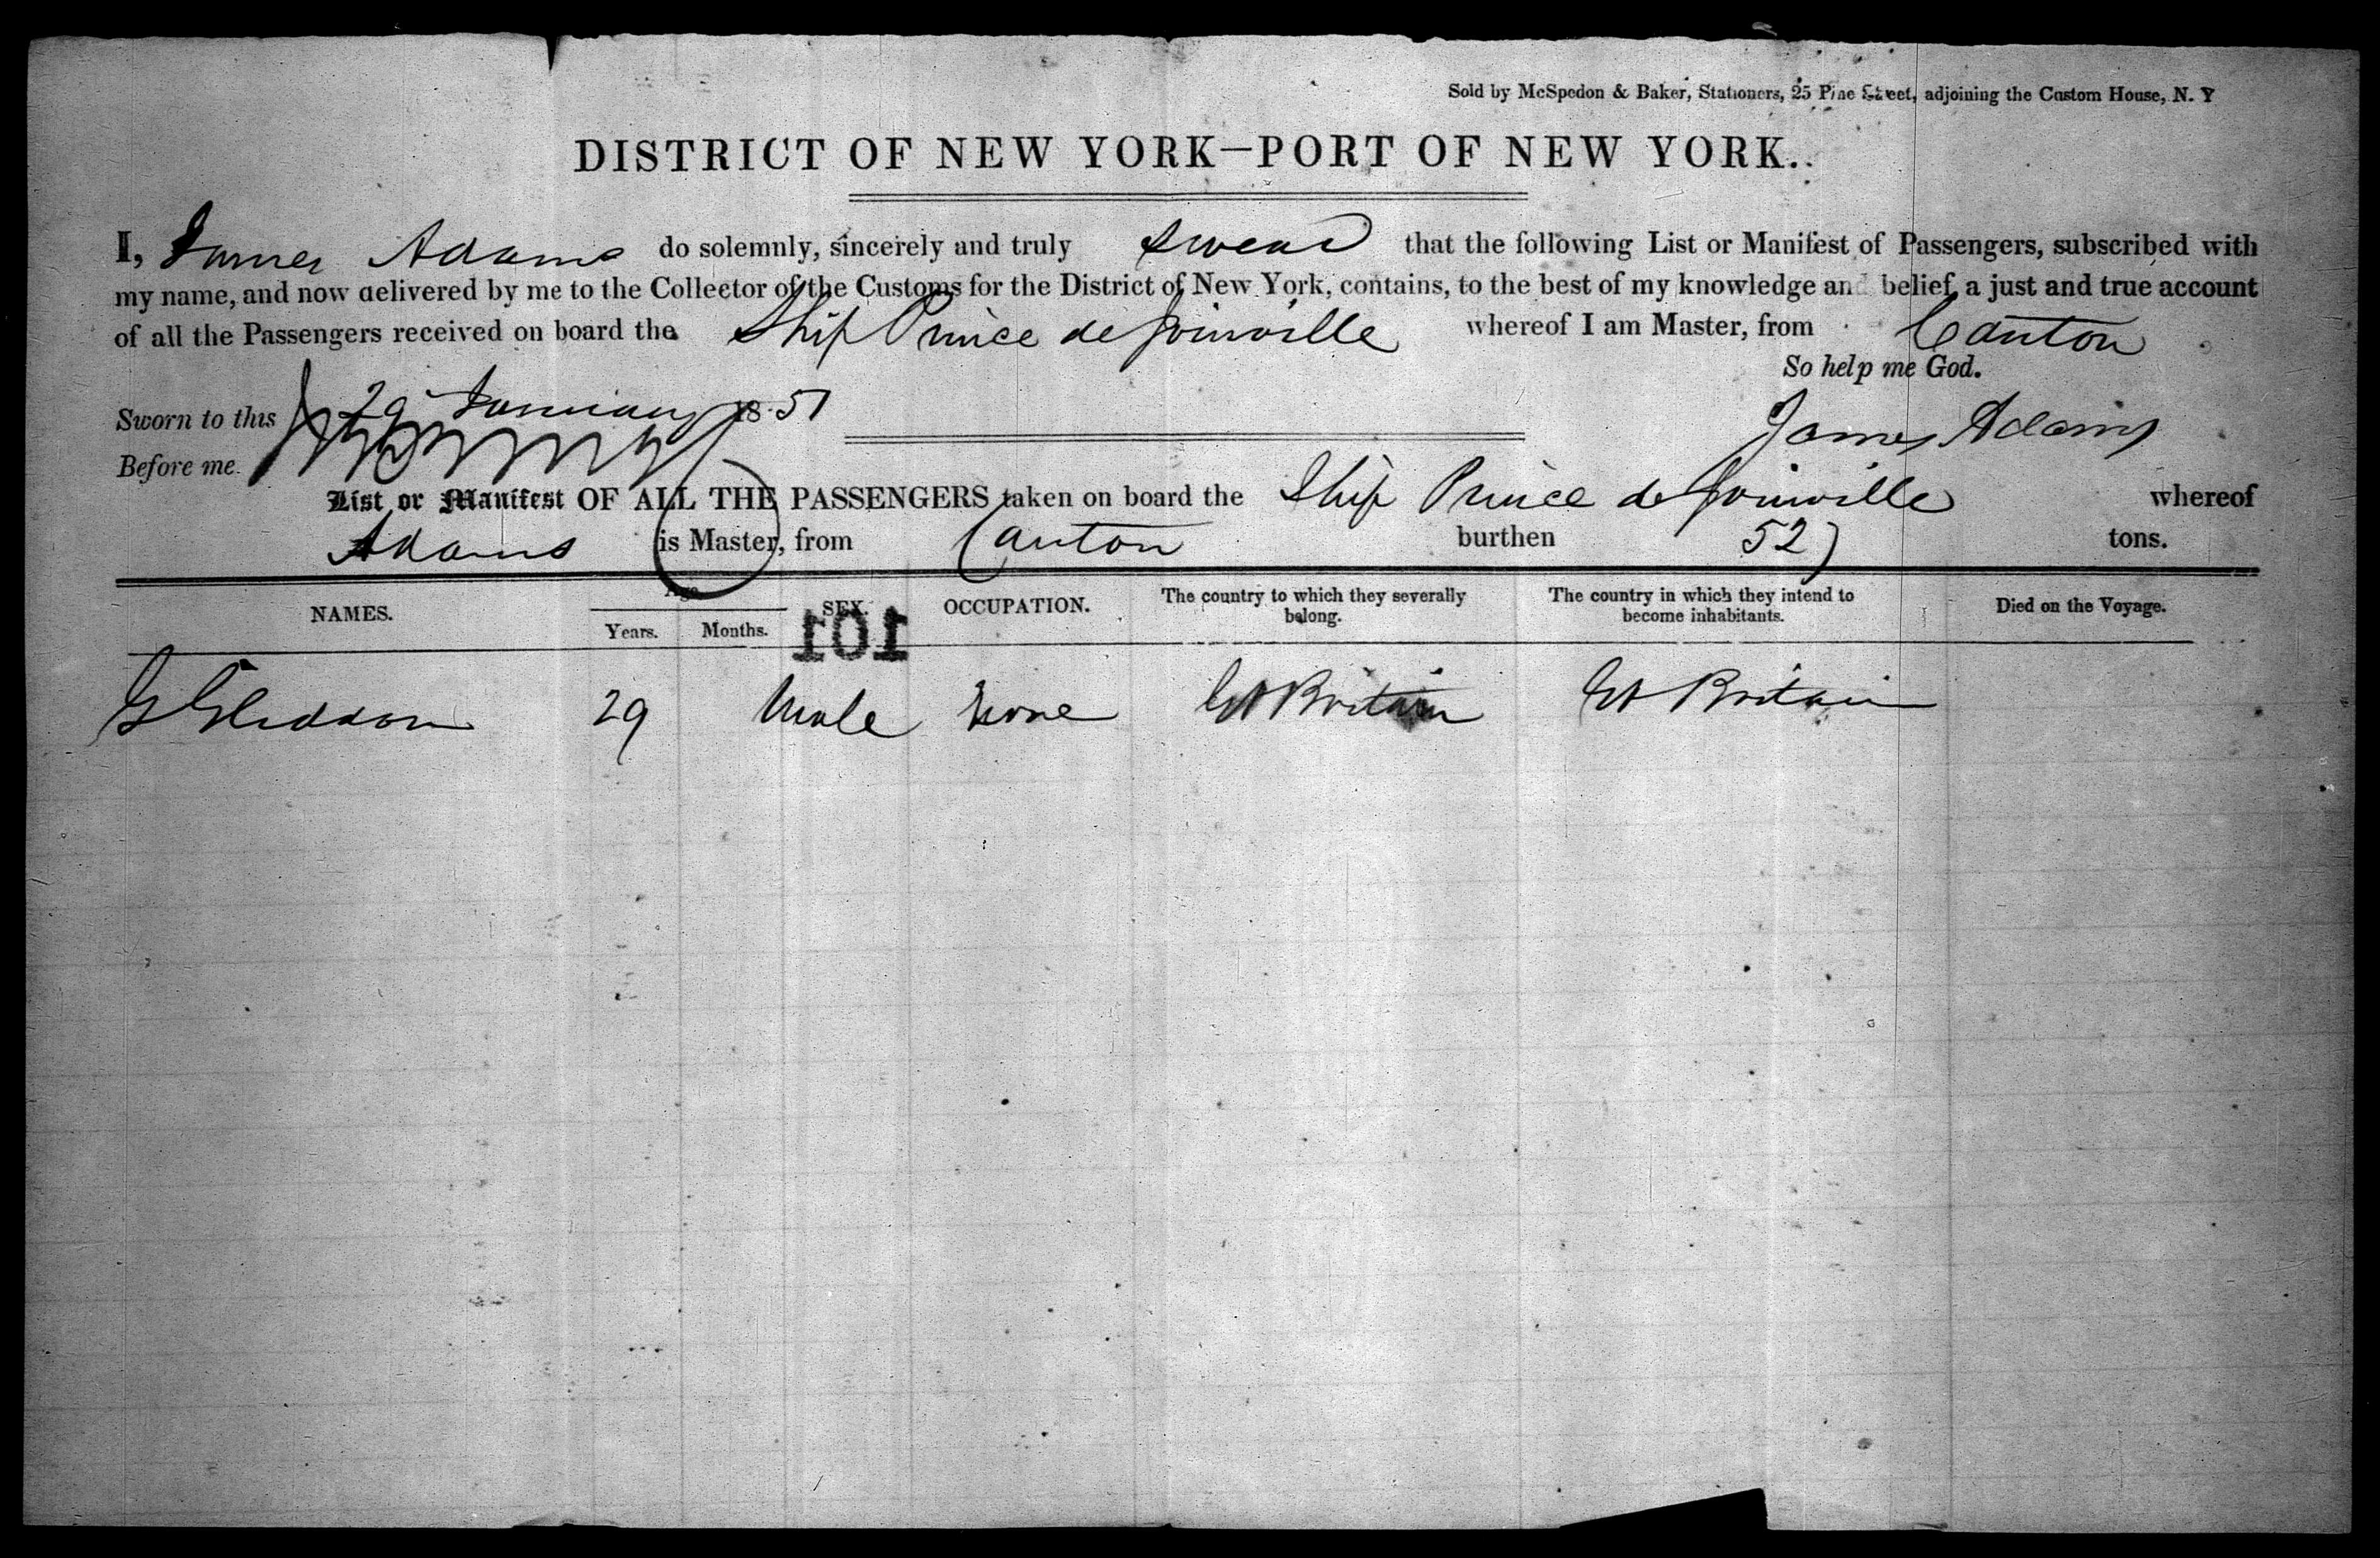 Sold by McSpedon & Baker, Stationers, 25 Pine Street, adjoining the Custom House, N. Y
DISTRICT OF NEW YORK—PORT OF NEW YORK.
I, James Adams do solemnly, sincerely and truly swear that the following List or Manifest of Passengers, subscribed with
my name, and now delivered by me to the Collector of the Customs for the District of New York, contains, to the best of my knowledge and belief, a just and true account
of all the Passengers received on board the Ship Prince de Joinville whereof I am Master, from Canton
So help me God.
Sworn to this 29 January 1851
James Adams
Before me.
List or Manifest OF ALL THE PASSENGERS taken on board the Ship Prince de Joinville whereof
Adams is Master, from Canton burthen 527 tons.
NAMES. Age. Years. Months. SEX. OCCUPATION. The country to which they severally belong. The country in which they intend to become inhabitants. Died on the Voyage.
101
G Gliddon 29 Male None Gt Britain Gt Britain